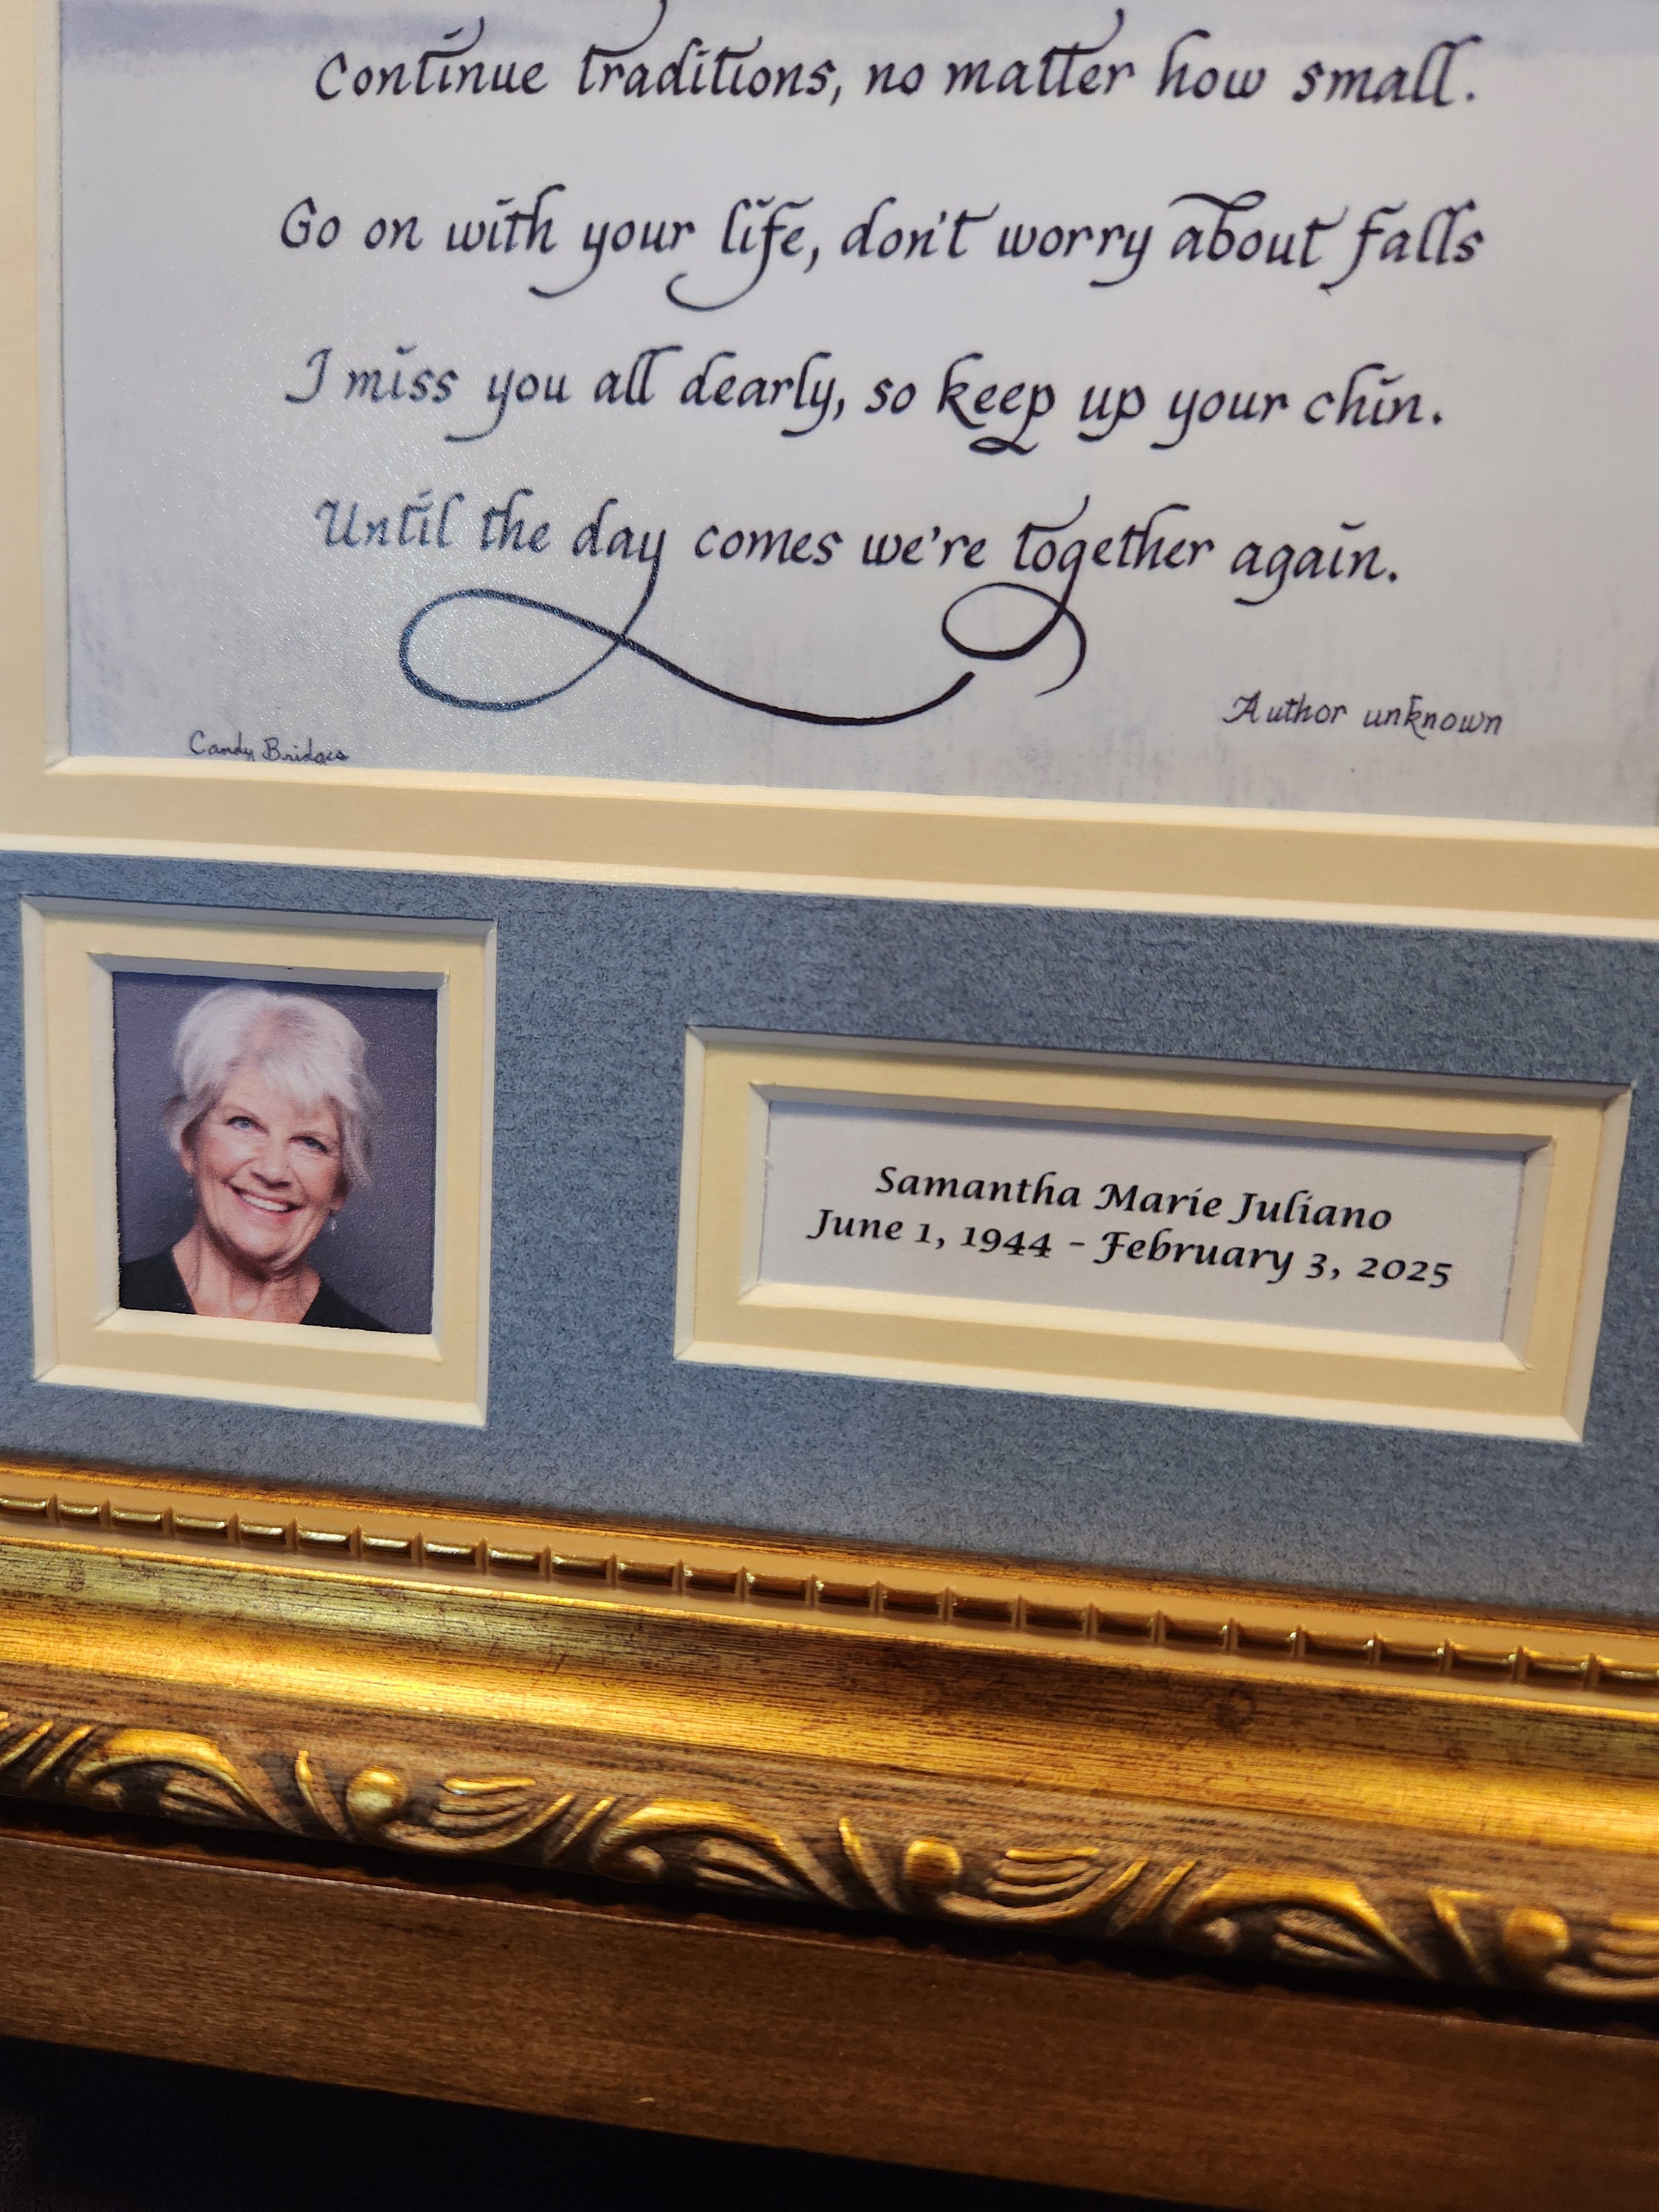 Continue traditions, no matter how small.
Go on with your life, don't worry about falls
I miss you all dearly, so keep up your chin.
Until the day comes we're together again.
Author unknown
Candy Bridges
Samantha Marie Juliano
June 1, 1944 - February 3, 2025